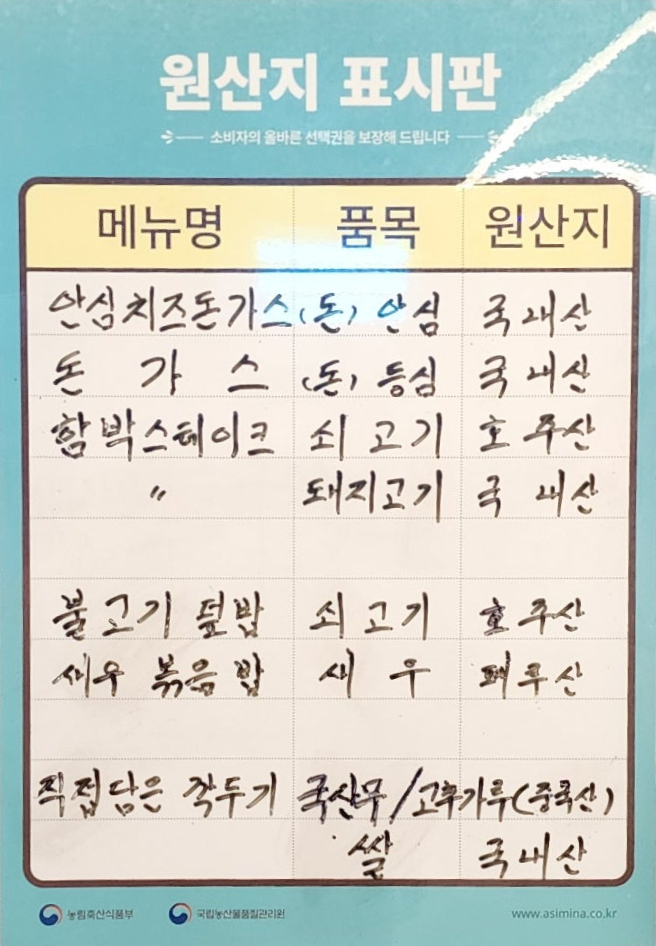 원산지 표시판
소비자의 올바른 선택권을 보장해 드립니다
메뉴명 품목 원산지
안심치즈돈가스 (돈) 안심 국내산
돈가스 (돈) 등심 국내산
함박스테이크 쇠고기 호주산
〃 돼지고기 국내산
불고기 덮밥 쇠고기 호주산
새우 볶음밥 새우 페루산
직접담은 깍두기 국산무/고추가루(중국산)
쌀 국내산
농림축산식품부 국립농산물품질관리원 www.asimina.co.kr